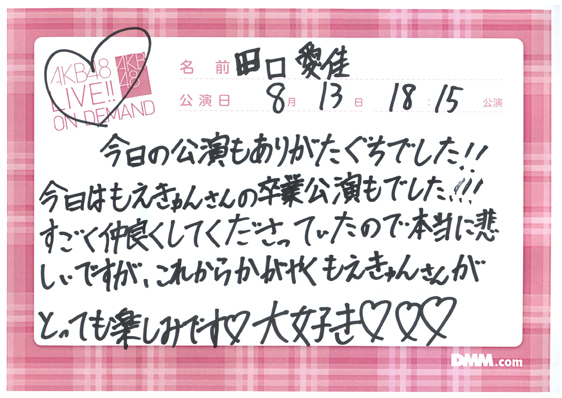 AKB48
LIVE!!
ON DEMAND
AKB
48
名 前 田口 愛佳
公演日 8月 13日 18:15 公演
今日の公演もありがたぐちでした!!
今日はもえきゅんさんの卒業公演もでした!!!
すごく仲良くしてくださっていたので本当に悲
しいですが、これからかがやくもえきゅんさんが
とっても楽しみです♡ 大好き♡♡♡
DMM.com